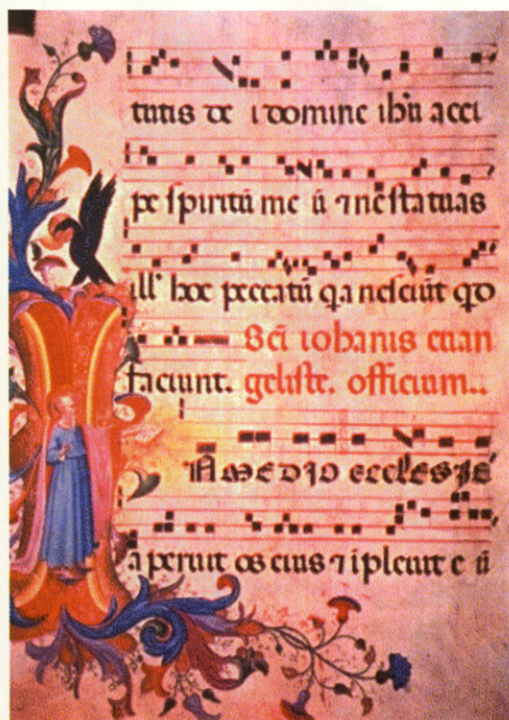 tutis de i domine ihu acci
pe spiritū me ū ⁊ ne statuas
ill' hoc peccatū q̄a nesciūt q̄d
Sc̄i iohanis euan
faciunt. geliste. officium..
N MEDIO ECCLESIE
aperuit os eius ⁊ ipleuit e ū